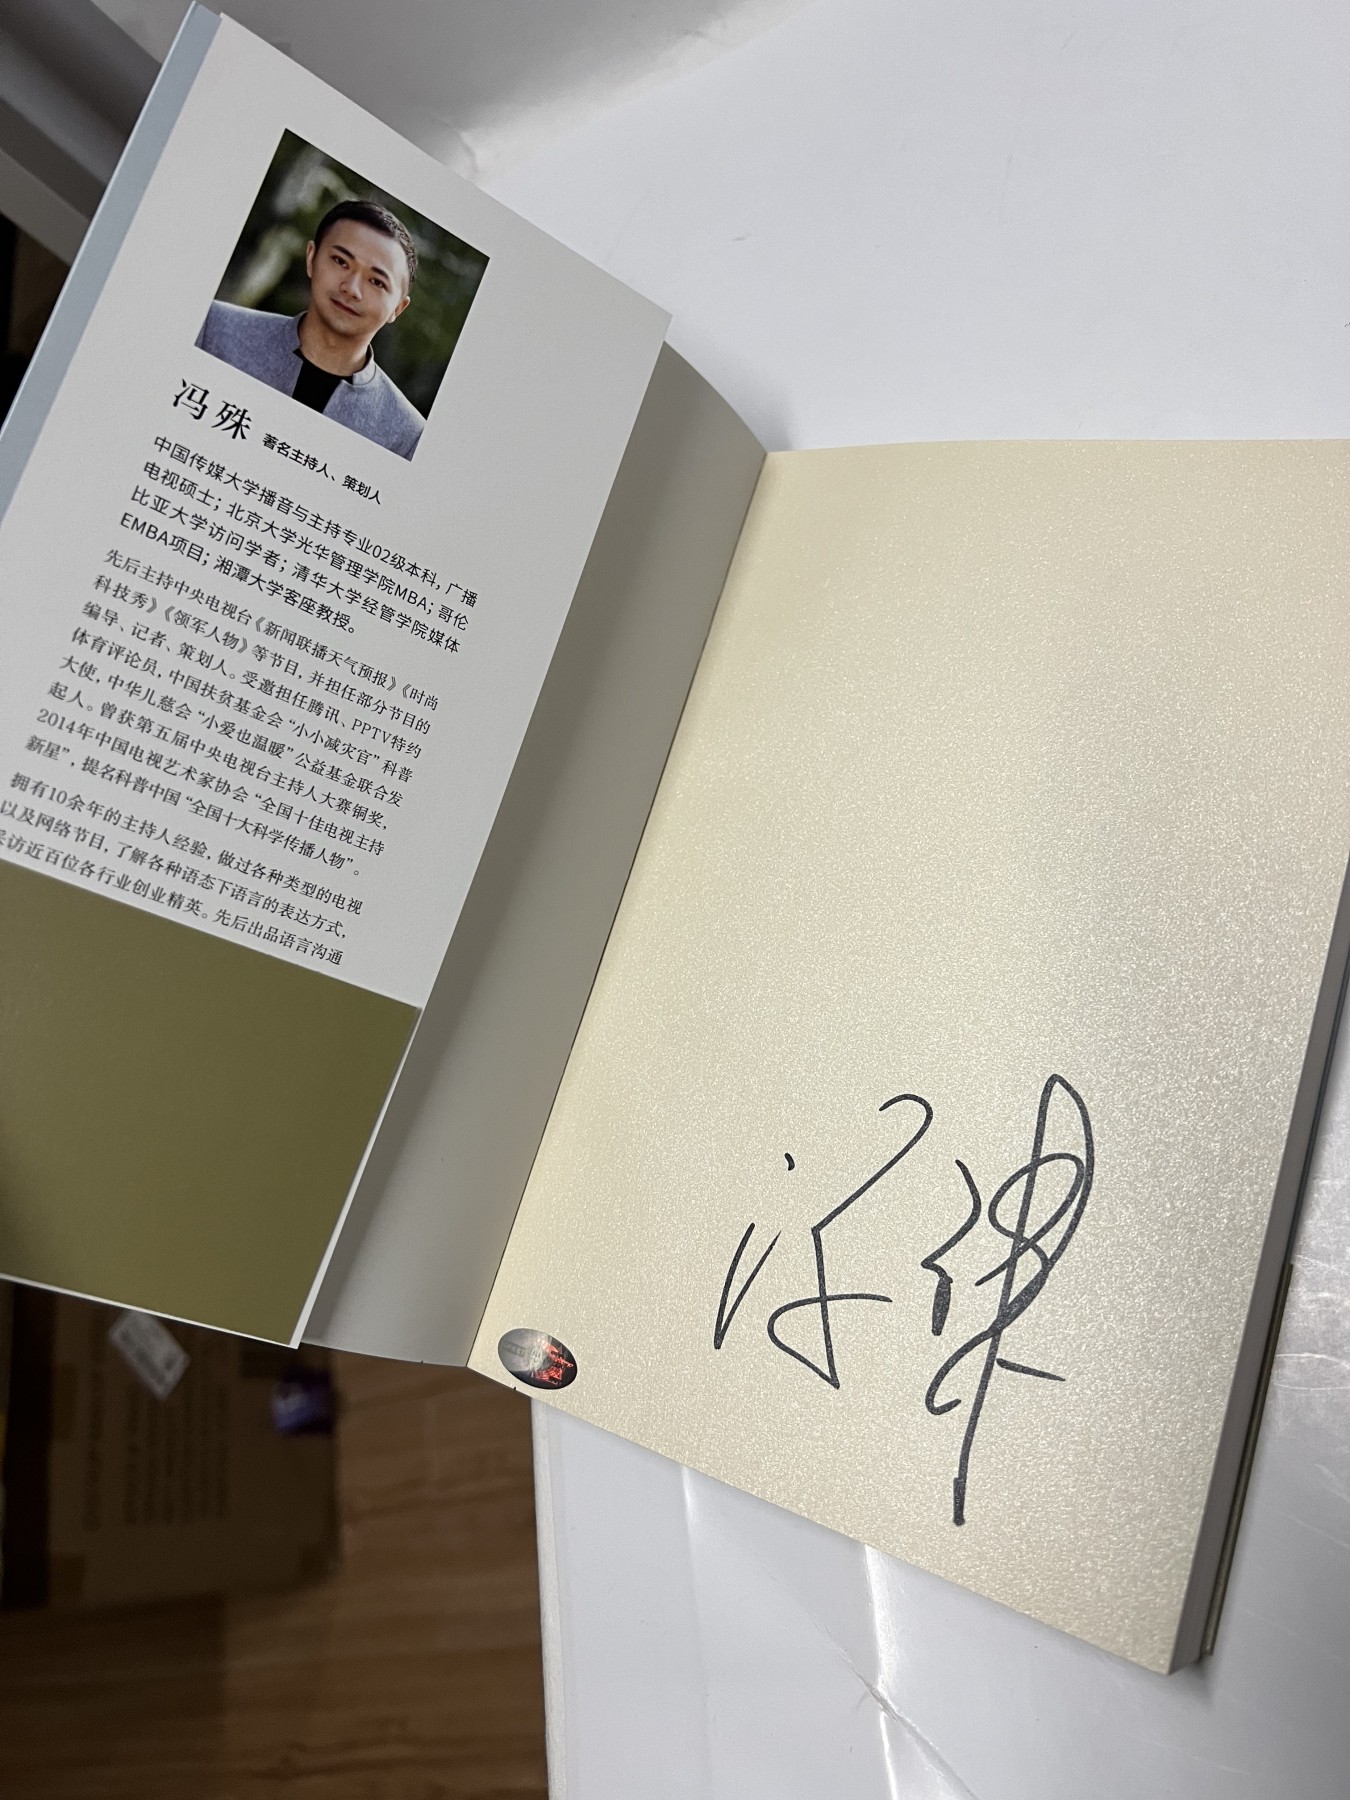 冯殊 著名主持人、策划人
中国传媒大学播音与主持专业02级本科，广播
电视硕士；北京大学光华管理学院MBA；哥伦
比亚大学访问学者；清华大学经管学院媒体
EMBA项目；湘潭大学客座教授。
先后主持中央电视台《新闻联播天气预报》《时尚
科技秀》《领军人物》等节目，并担任部分节目的
编导、记者、策划人。受邀担任腾讯、PPTV特约
体育评论员，中国扶贫基金会“小小减灾官”科普
大使，中华儿慈会“小爱也温暖”公益基金联合发
起人。曾获第五届中央电视台主持人大赛铜奖，
2014年中国电视艺术家协会“全国十佳电视主持
新星”，提名科普中国“全国十大科学传播人物”。
拥有10余年的主持人经验，做过各种类型的电视
以及网络节目，了解各种语态下语言的表达方式，
采访近百位各行业创业精英。先后出品语言沟通
冯殊